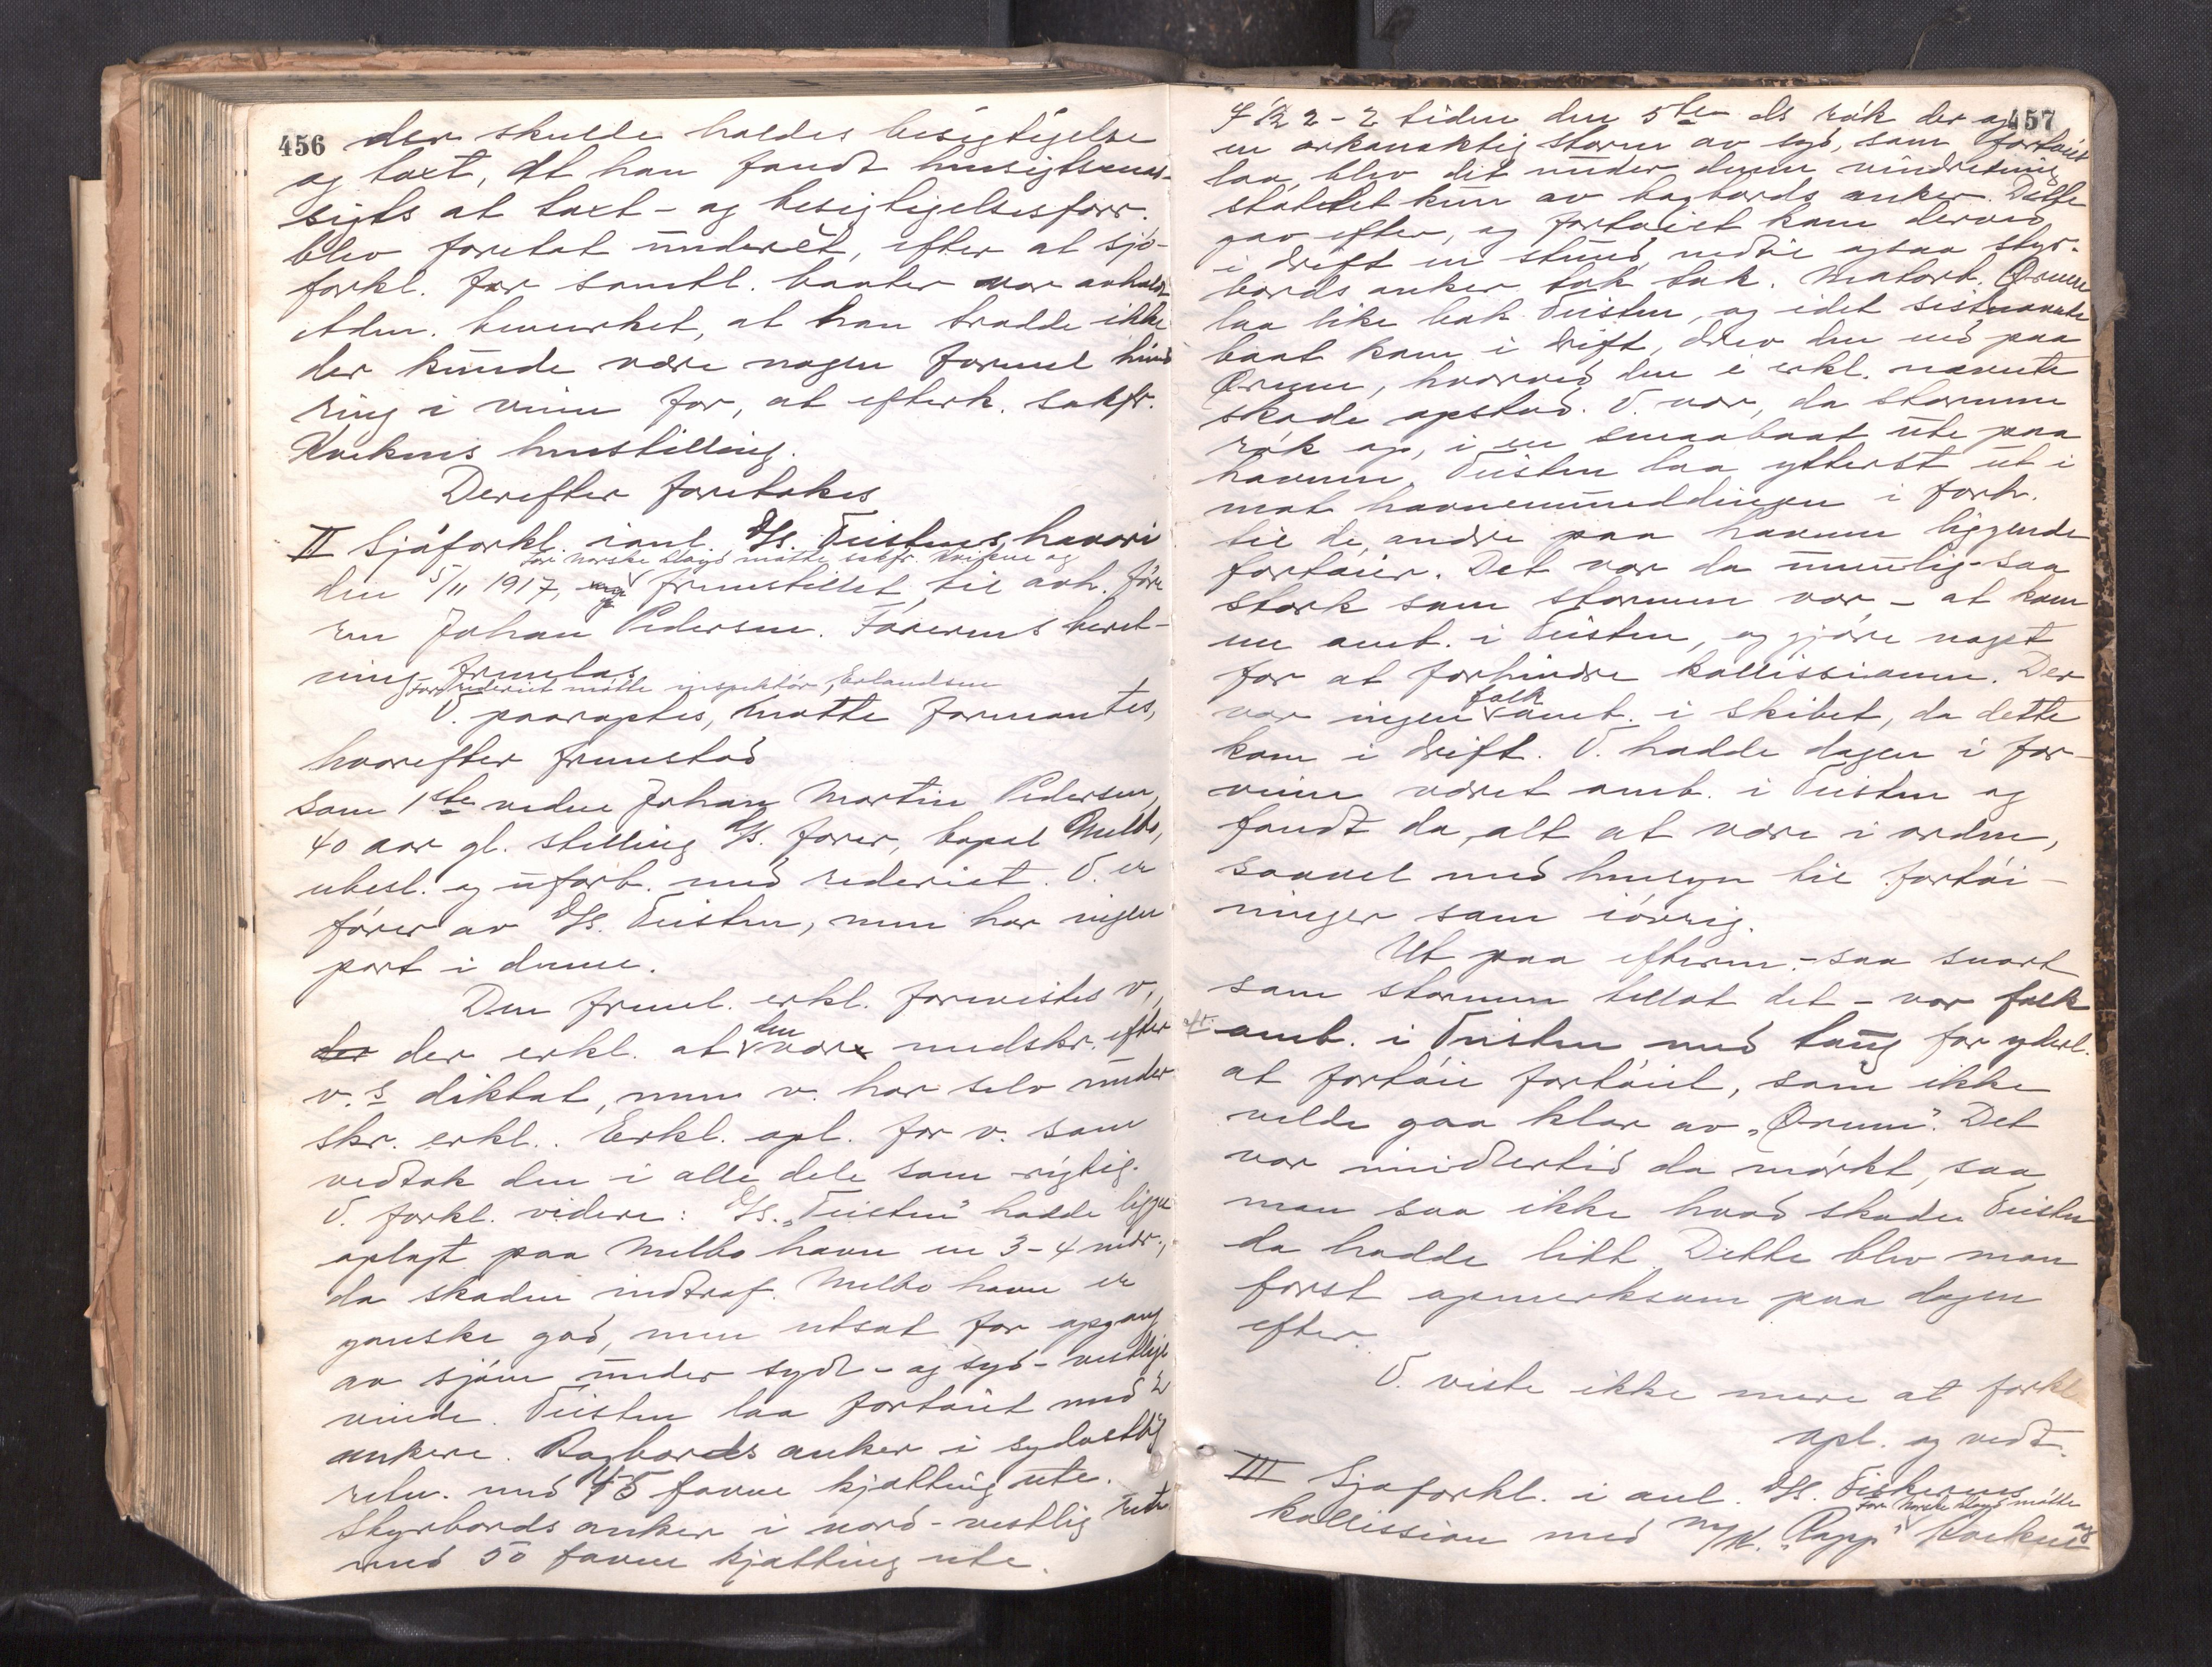 456
der skulde holdes besigtigelse
og taxt, At han fandt hensigtsmæs-
sigts at taxt- og besigtigelsesforr.
blev foretat underet, efter at sjø-
forkl. for samtl. baater var avholdt
Adm. bemerket, at han trodde ikke
der kunde være nogen formel hind
ring i veien for, at efterk. sakfr.
Kveknes henstilling.
Derefter foretokes
II Sjøforkl. i anl. D/S. Teistens havari
for norske Lloyd møtte sakfr. Kveknes og
den 5/11 1917, fremstillet til avh. føre
ren Johan Pedersen. Førerens beret-
ning fremlas
For rederiet møtte inspektør Erlandsen
V. paaroptes, møtte formantes,
hvorefter fremstod
Som 1ste vidne Johan Martin Pedersen
40 aar gl. stilling D/S. fører, bopæl Melbo,
ubesl. og uforb. med rederiet. V. er
fører av D/S. Teisten, men har ingen
part i denne.
Den freml. erkl. forevistes v.,
der erkl. at den var nedskr. efter
v.s diktat, men v. har selv under
skr. erkl.. Erkl. opl. for v. som
vedtok den i alle dele som rigtig.
V. forkl. videre: D/S. „Teisten" hadde ligget
oplagt paa Melbo havn en 3-4 mdr.,
da skaden indtraf. Melbo havn er
ganske god, men utsat for opgang
av sjøen under syd- og syd-vestlige
vinde. Teisten laa fortøiet med 2
ankere. Bagbords anker i sydostlig
retn. med 45 favne kjætting ute.
Styrbords anker i nord-vestlig retn
med 50 favne kjætting ute.
457
I 1/2 2-2 tiden den 5te ds røk der op
en orkanaktig storm av syd, som fartøiet
laa, blev det under denne vindretning
støttet kun av bagbords anker. Dette
gav efter, og fartøiet kom derved
i drift en stund, indtil ogsaa styr-
bords anker tok tak. Motorb. Ørnen
laa like bak Teisten, og idet sistnævnte
baat kom i drift, drev den ned paa
Ørnen, hvorved den i erkl. nævnte
skade opstod. V. var, da stormen
røk op, i en smaabaat ute paa
havnen. Teisten laa ytterst ut i
mot havnemundingen i forh.
til de andre paa havnen liggende
fartøier. Det var da umulig - saa
stærk som stormen var - at kom
me omb. i Teisten, og gjøre noget
for at forhindre kollissionen. Der
var ingen folk omb. i skibet, da dette
kom i drift. V. hadde dagen i for-
veien været omb. i Teisten og
fandt da, alt at være i orden,
saavel med hensyn til fortøi-
ninger som iøvrig.
Ut paa efterm. - saa snart
som stormen tillot det - var folk
omb. i Teisten med taug for yderl.
at fortøie fartøiet, som ikke
vilde gaa klar av „Ørnen". Det
var imidlertid da mørkt, saa
man saa ikke hvad skade Teisten
da hadde litt. Dette blev man
først opmerksom paa dagen
efter.
V. viste ikke mere at forkl
opl. og vedt.
III Sjøforkl. i anl. D/S. Fiskerens
For Norske Lloyd møtte
kollission med M/K. „Rapp" Kveknes og